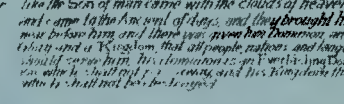 like the Son of man came with the clouds of heaven
and came to the Ancient of days, and they brought h
near before him, and there was given him Dominion, and
Glory and a Kingdom, that all people, nations and lang
should serve him, his dominion is an Everlasting Do
which shall not away, and his Kingdom th
which shall not be destroyed